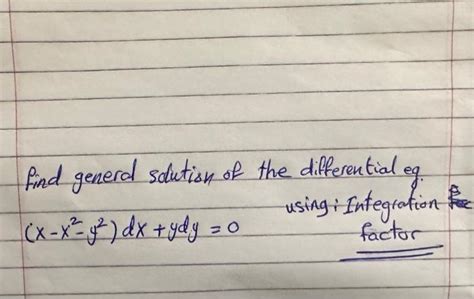 find general solution of the differential eq.
using: Integration
(x-x²-y²) dx + ydy = 0
factor